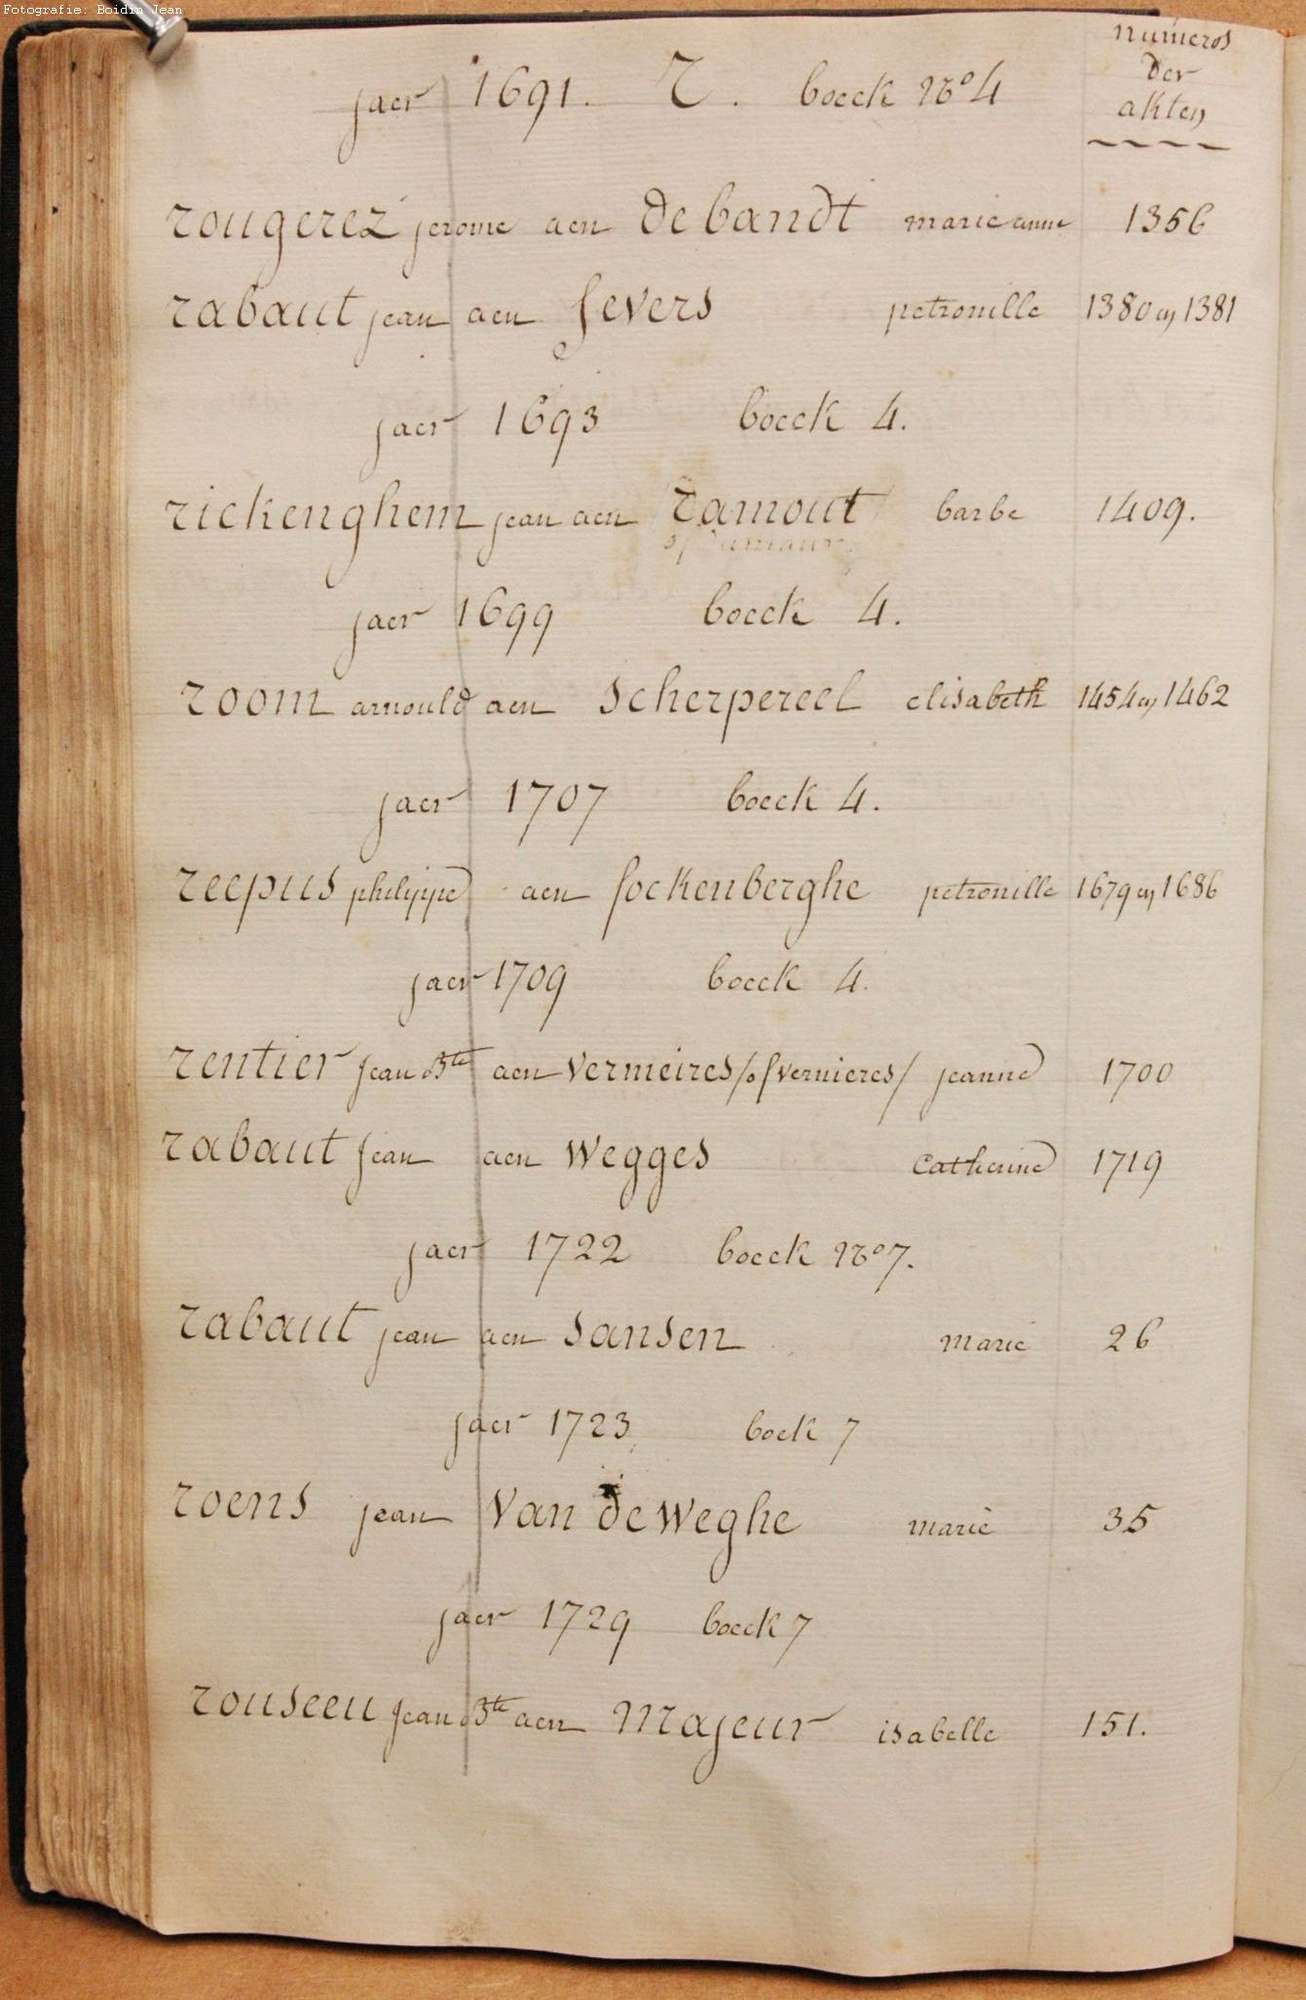 Fotografie: Boidin Jean
numeros
der
akten
jaer 1691. R. boeck No 4
rougerez jerome aen De bandt marie anne 1356
rabaut jean aen severs petronille 1380 en 1381
jaer 1693 boeck 4.
rickenghem jean aen ramout barbe 1409.
jaer 1699 boeck 4.
room arnould aen scherpereel elisabeth 1454 en 1462
jaer 1707 boeck 4.
reepus philippe aen fockenberghe petronille 1679 en 1686
jaer 1709 boeck 4.
rentier jean Bte aen vermeires /of vernieres/ jeanne 1700
rabaut jean aen wegges catherine 1719
jaer 1722 boeck No 7.
rabaut jean aen sansen marie 26
jaer 1723 boek 7
roens jean Van de weghe marie 35
jaer 1729 boeck 7
rouseeu jean Bte aen Majeur isabelle 151.